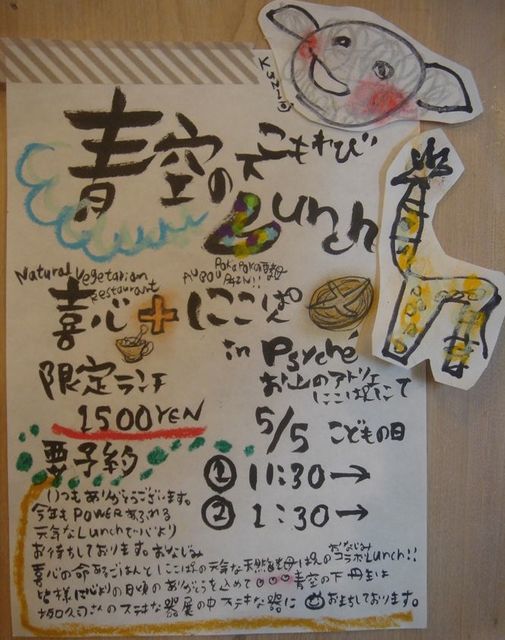 青空の下
こもれび
Lunch
Natural Vegetarian
Restaurant
POKAPOKA酵母
PAZN!!
喜心+にこぱん
in Psyché
限定ランチ
お山のアトリエ
にこぱんにて
1500YEN
5/5 こどもの日
要予約
① 11:30→
② 1:30→
いつもありがとうございます。
今年もPOWERあふれる
元気なLunchで心より
お待ちしております。おなじみ
喜心の命あるごはんとにこぱんの元気な天然酵母ぱんのおなじみコラボLunch!!
皆様に心より日頃のありがとうを込めて○○○青空の下
坂口久司さんのステキな器展の中ステキな器に おまちしております。